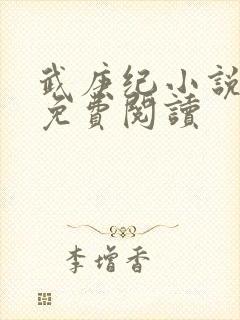 武庚纪小說
免費閱讀
李增香